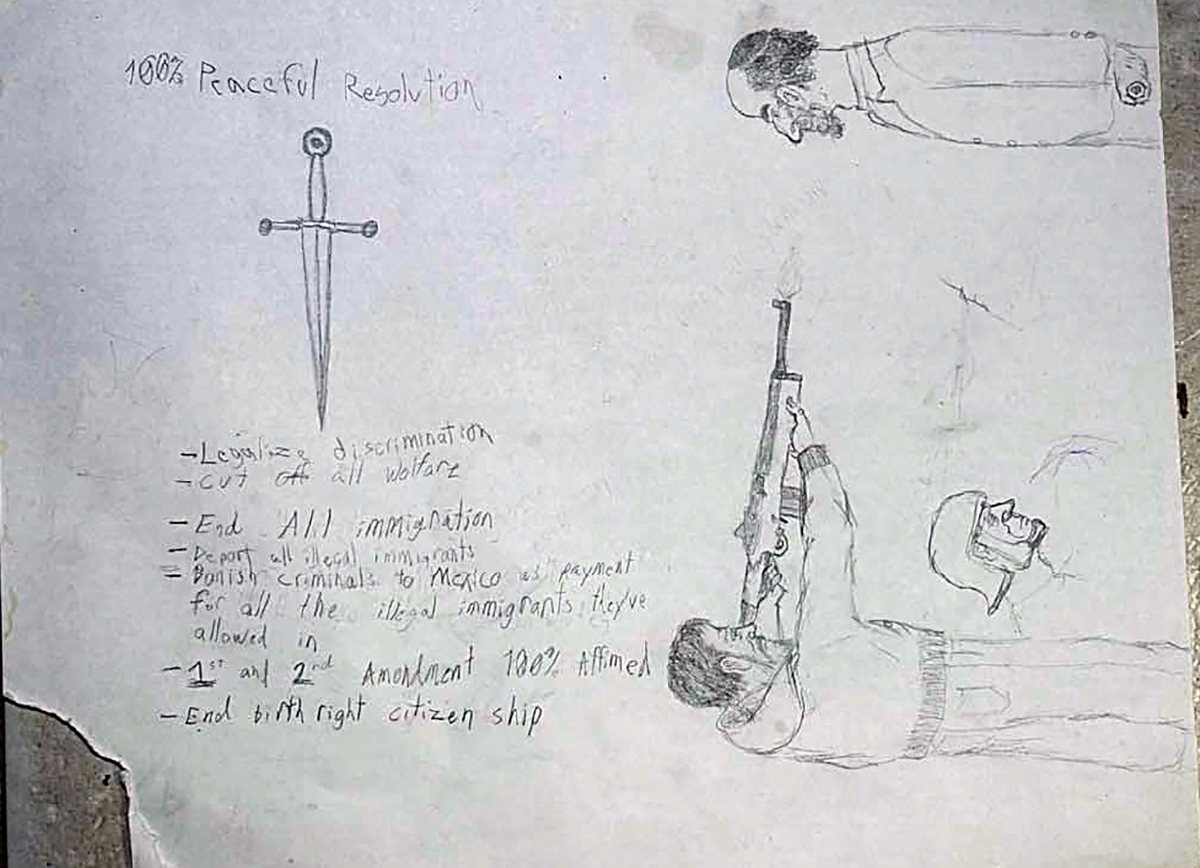 100% Peaceful Resolution
- Legalize discrimination
- cut off all welfare
- End All immigration
- Deport all illegal immigrants
- Banish criminals to Mexico as payment
for all the illegal immigrants they've
allowed in
- 1st and 2nd Amendment 100% Affimed
- End birth right citizen ship